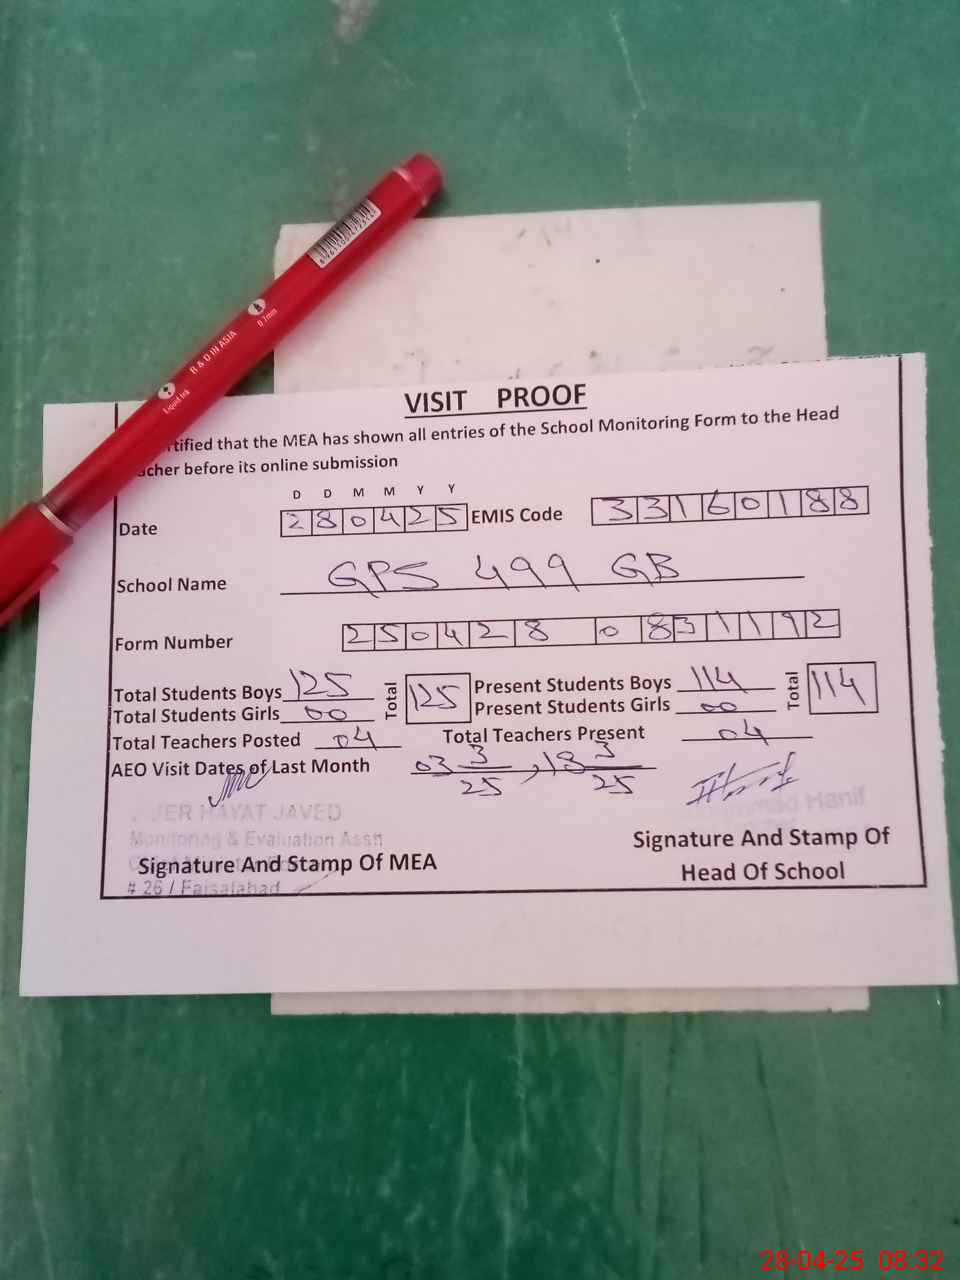 R & D IN ASIA
0.7mm
Liquid Ink
VISIT PROOF
rtified that the MEA has shown all entries of the School Monitoring Form to the Head
acher before its online submission
D D M M Y Y
Date 280425 EMIS Code 33160188
School Name GPS 499 GB
Form Number 250428 0831192
Total Students Boys 125 Total 125 Present Students Boys 114 Total 114
Total Students Girls 00 Present Students Girls 00
Total Teachers Posted 04 Total Teachers Present 04
AEO Visit Dates of Last Month 03 3/25, 18 3/25
HAYAT JAVED
Monitoring & Evaluation Asstt
Hanif
Signature And Stamp Of MEA
# 26 / Faisalabad
Signature And Stamp Of
Head Of School
28-04-25 08:32